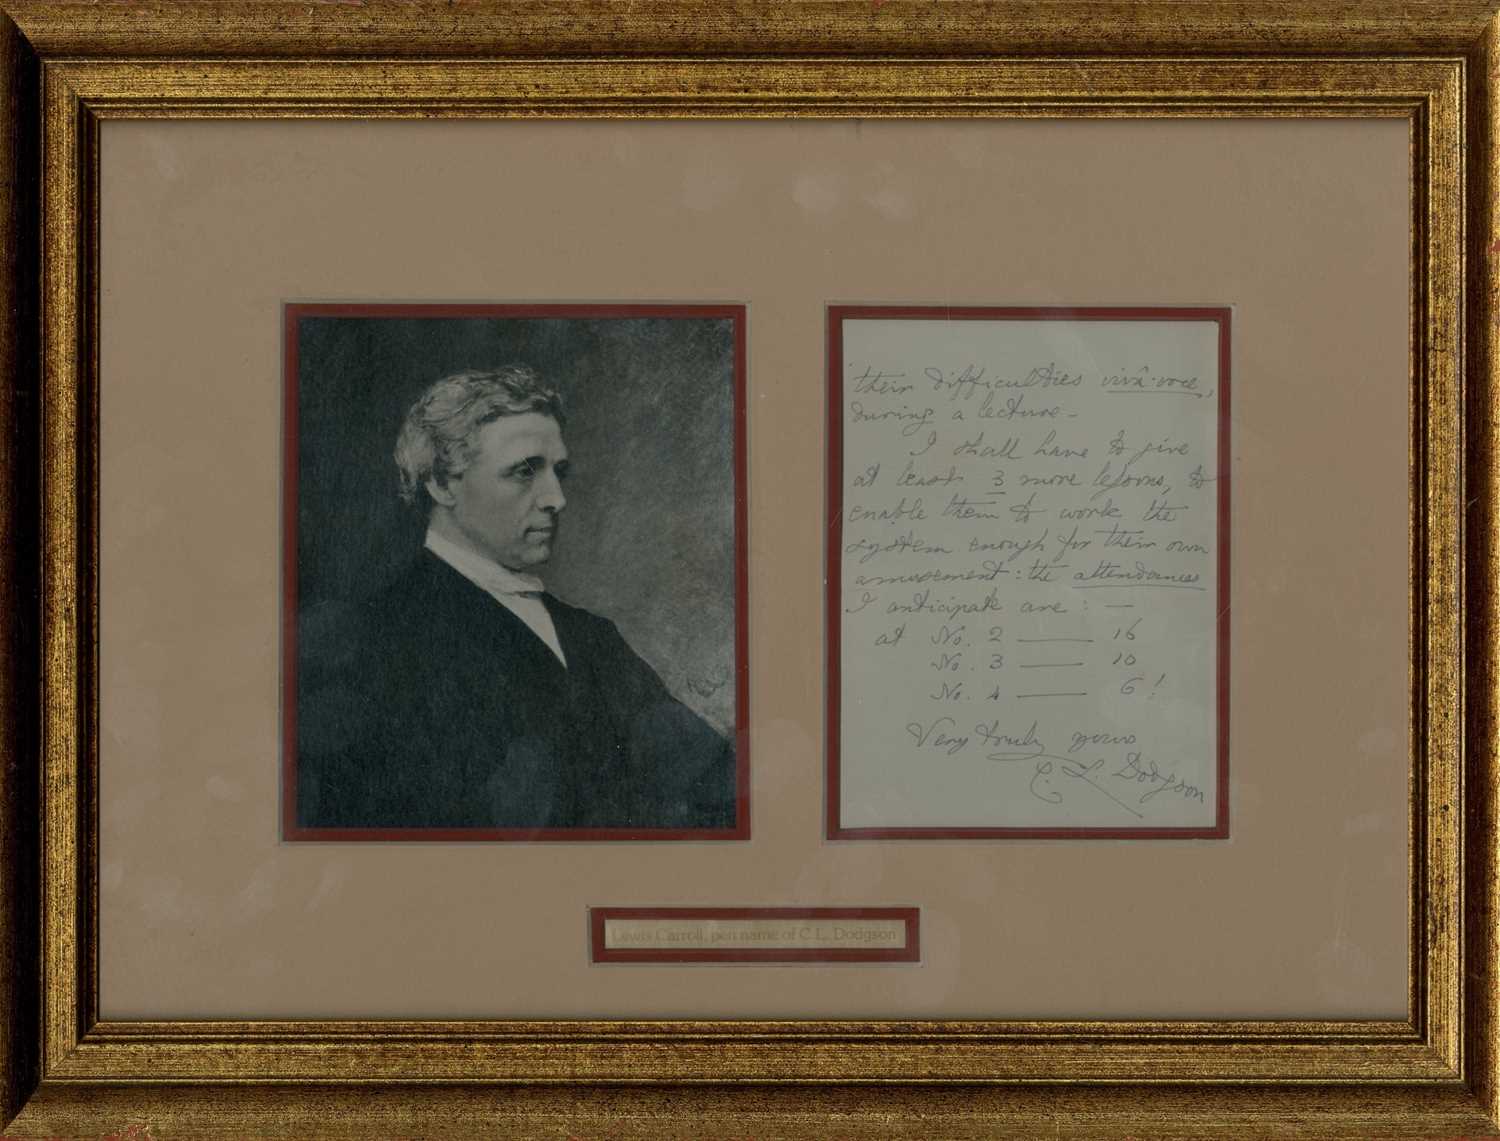 their difficulties vivâ-voce,
during a lecture—
I shall have to give
at least 3 more lessons, to
enable them to work the
system enough for their own
amusement: the attendances
I anticipate are: —
at No. 2 —— 16
No. 3 —— 10
No. 4 —— 6!
Very truly yours
C. L. Dodgson
Lewis Carroll, pen name of C.L. Dodgson